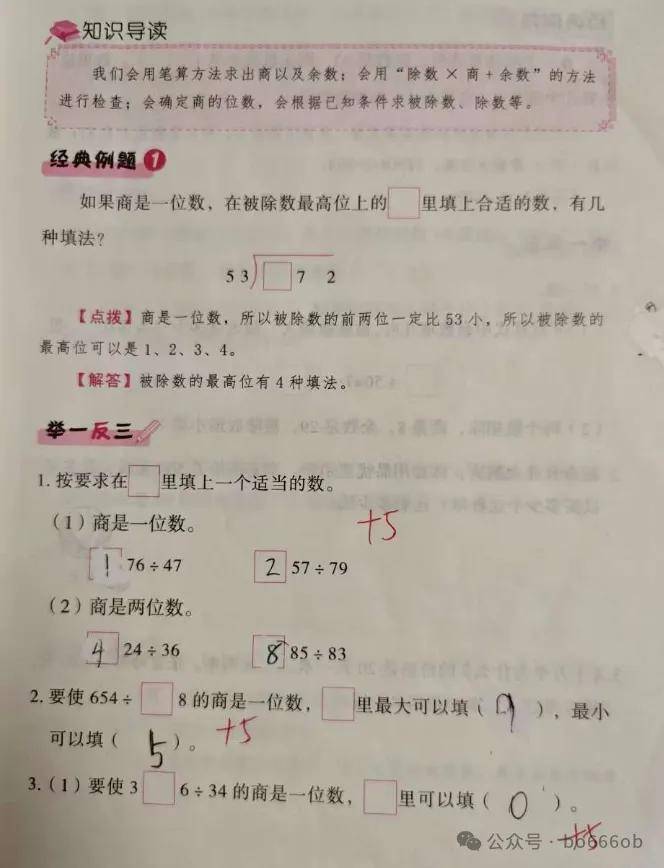 知识导读
我们会用笔算方法求出商以及余数；会用“除数×商+余数”的方法
进行检查；会确定商的位数，会根据已知条件求被除数、除数等。
经典例题 1
如果商是一位数，在被除数最高位上的□里填上合适的数，有几
种填法？
53 □72
【点拨】商是一位数，所以被除数的前两位一定比53小，所以被除数的
最高位可以是1、2、3、4。
【解答】被除数的最高位有4种填法。
举一反三
1.按要求在□里填上一个适当的数。
（1）商是一位数。 +5
1 76÷47 2 57÷79
（2）商是两位数。
4 24÷36 8 85÷83
2.要使654÷□8的商是一位数，□里最大可以填（ 9 ），最小
可以填（ 5 ）。 +5
3.（1）要使3□6÷34的商是一位数，□里可以填（ 0 ）。
+5
公众号·bo666ob